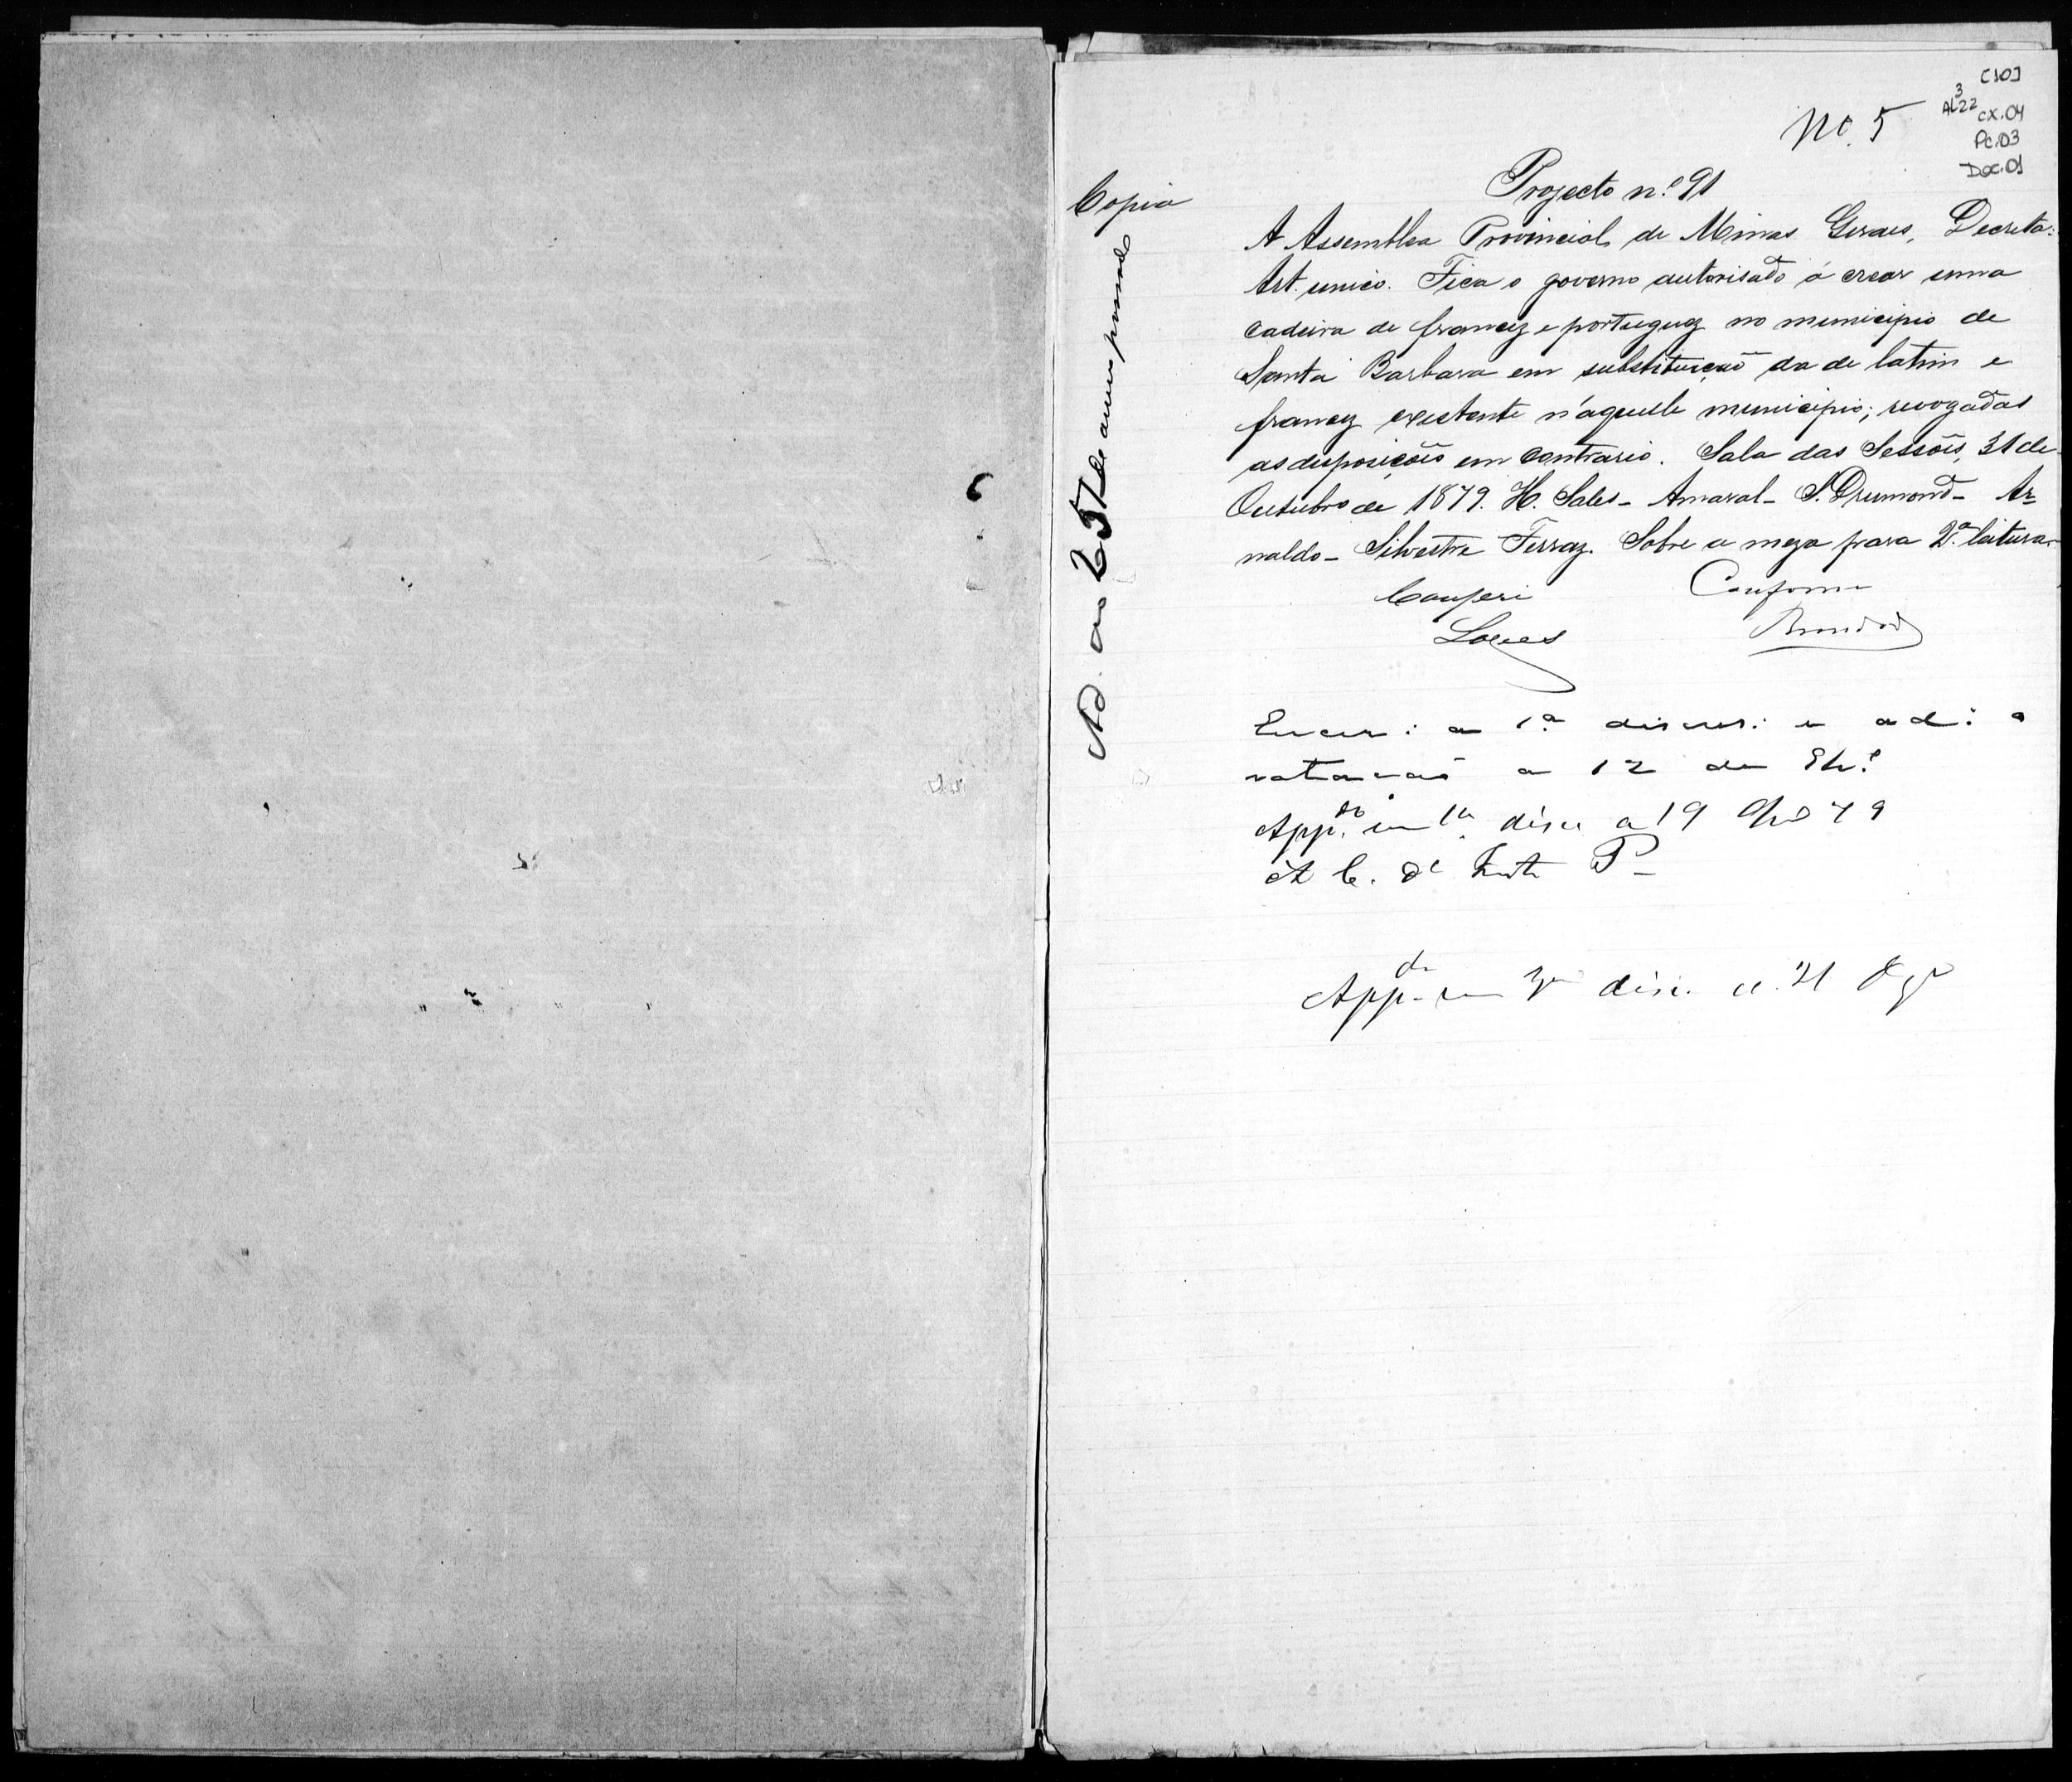 [10]
3
AL22 cx.04
Pc.03
Doc.01
No. 5
Copia
Projecto n.º 91
A Assemblea Provincial de Minas Geraes, Decreta:
Art. unico. Fica o governo autorisado á crear uma
cadeira de francez e portuguez no municipio de
Santa Barbara em substituição da de latim e
francez existente n'aquelle municipio; revogadas
as disposições em contrario. Sala das Sessões, 31 de
Outubro de 1879. H. Sales - Amaral - S. Drumond - Ar-
naldo - Silvestre Ferraz. Sobre a meza para 2.ª leitura.
Conferi Conforme
Lopes
a 1ª discus: e ad: a
votação a 12 de
App.do em 1ª disc a 19 79
A C. de P
App.do em disc. a 21
Ad. ao 251 do anno passado